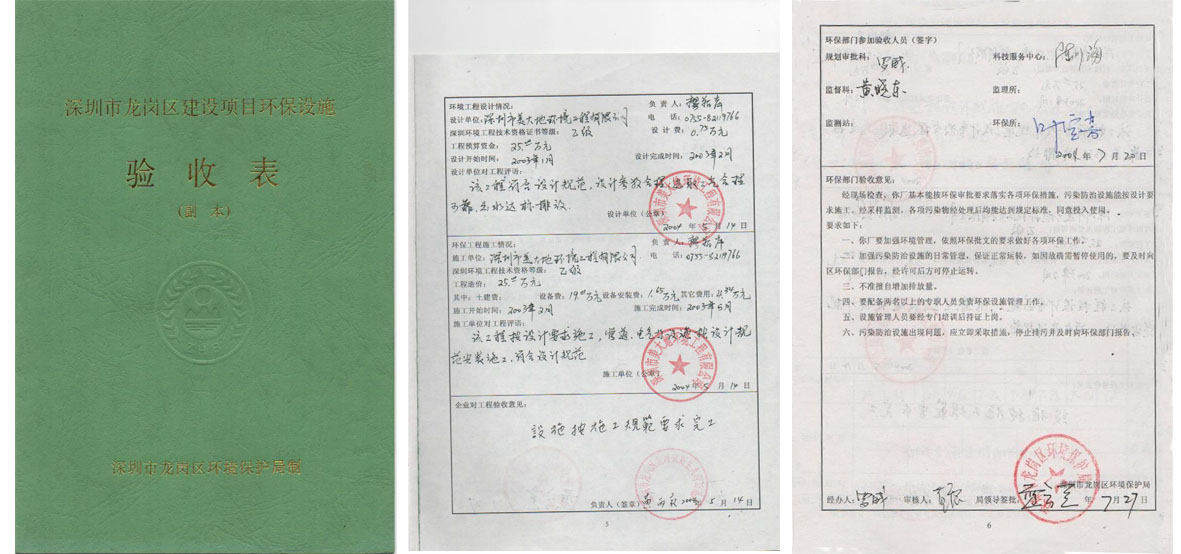 深圳市龙岗区建设项目环保设施
验收表
(副本)
深圳市龙岗区环境保护局制
环境工程设计情况：
负责人：
设计单位：深圳市美大地环境工程有限公司
电话：0755-8219766
深圳环境工程技术资格证书等级：乙级
设计费：0.75万元
工程预算资金：25.00万元
设计开始时间：2003年1月
设计完成时间：2003年2月
设计单位对工程评语：
该工程符合设计规范，设计参数合理，选取工艺合理
可靠，出水达标排放．
设计单位（公章）
2004年5月14日
环保工程施工情况：
负责人：
施工单位：深圳市美大地环境工程有限公司
电话：0755-8219766
深圳环境工程技术资格等级：乙级
工程造价：25.00万元
其中：土建费： 设备费：19.01万元 设备安装费：1.65万元 其它费用：4.34万元
施工开始时间：2003年2月
施工完成时间：2003年5月
施工单位对工程评语：
该工程按设计要求施工，管道、电气
按设计规
范安装施工，符合设计规范
施工单位（公章）
2004年5月14日
企业对工程验收意见：
設施按施工規範要求完工
负责人（签章）
5月14日
5
环保部门参加验收人员（签字）
规划审批科：
科技服务中心：
监督科：黄晓东
监理所：
监测站：
环保所：
2004年7月20日
环保部门验收意见：
经现场检查，你厂基本能按环保审批要求落实各项环保措施，污染防治设施能按设计要
求施工。经采样监测，各项污染物经处理后均能达到规定标准，同意投入使用。
要求如下：
一、你厂要加强环境管理，依照环保批文的要求做好各项环保工作。
二、加强污染防治设施的日常管理，保证正常运转，如因故确需暂停使用的，要及时向
区环保部门报告，经许可后方可停止运转。
三、不准擅自增加排放量。
四、要配备两名以上的专职人员负责环保设施管理工作。
五、设施管理人员要经专门培训后持证上岗。
六、污染防治设施出现问题，应立即采取措施，停止排污并及时向环保部门报告。
深圳市龙岗区环境保护局
经办人：
审核人：
局领导签批：
年7月27日
6